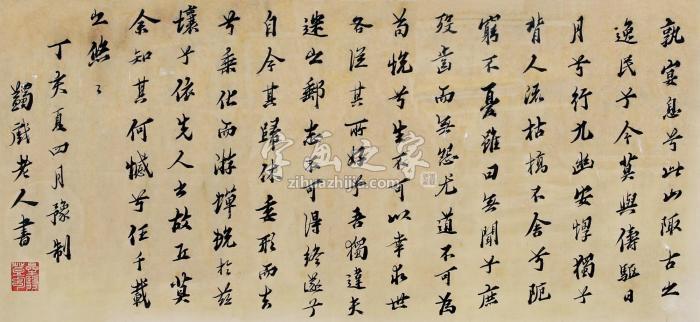 孰宴息兮此山陬古之
逸民兮今莫與儔驅日
月兮行九幽安惸獨兮
背人流枯槁不舍兮阨
窮不憂雖曰無聞兮庶
殁齒而無怨尤道不可為
苟悅兮生不可以幸求世
各從其所好兮吾獨違夫
迷之郵志不可得終遂兮
自今其歸休委形而去
兮乘化而游蟬蛻於茲
壤兮依先人之故丘莫
余知其何憾兮任千載
之悠々
丁亥夏四月豫制
蠲戲老人書
字畫之家
zihuazhijia.com